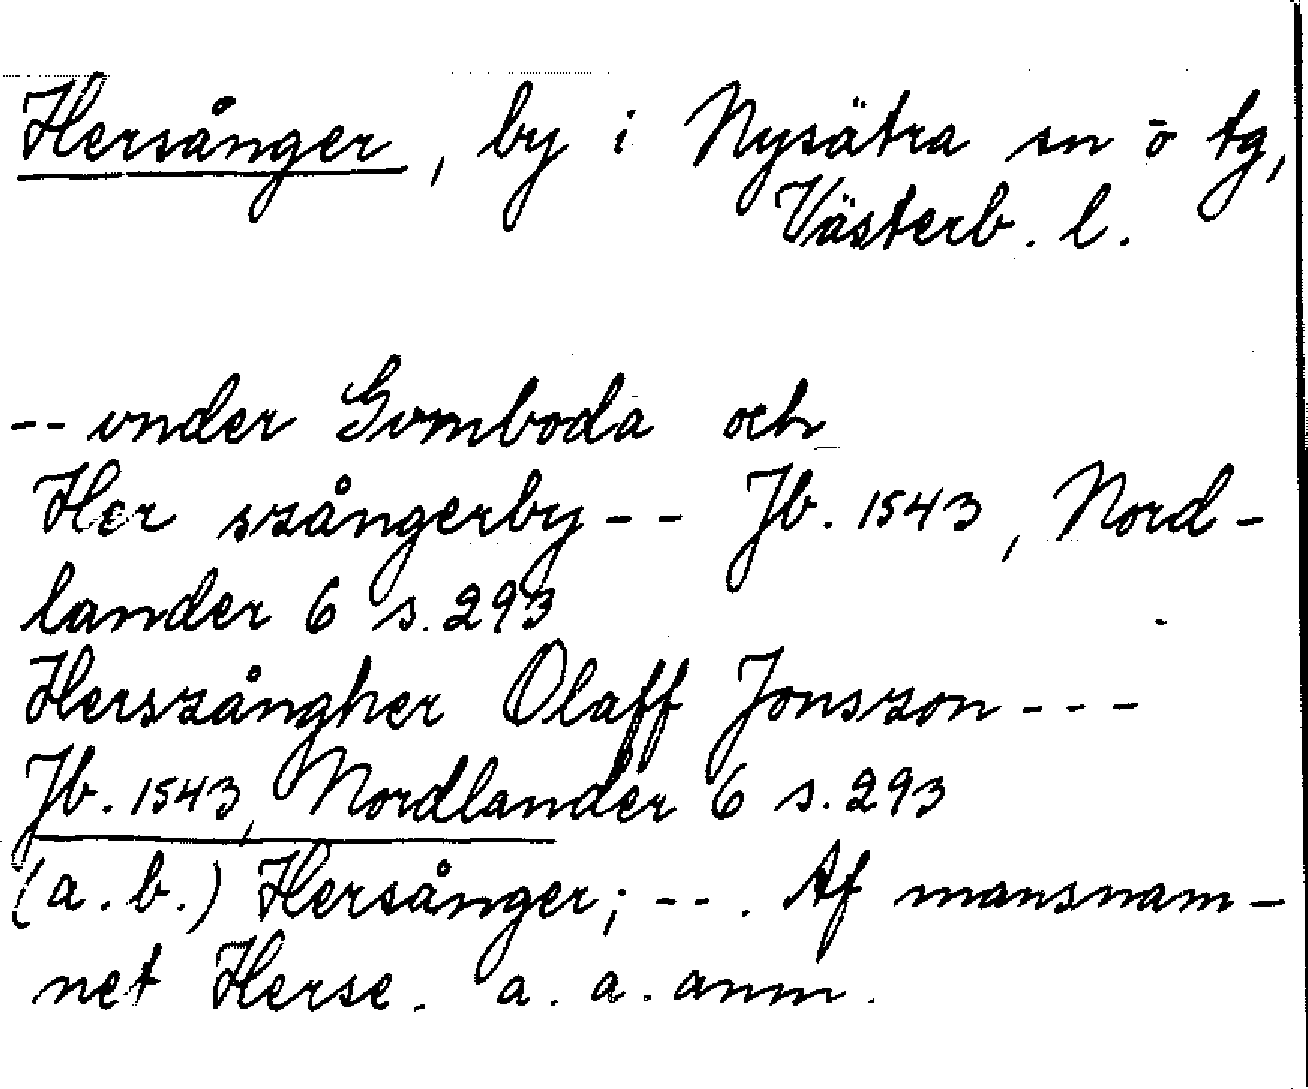 Hersånger, by i Nysätra sn ö tg,
Västerb. l.
-- vnder Gvmboda och
Her szångerby -- Jb. 1543, Nord-
lander 6 s. 293
Herszångher Olaff Jonszon ---
Jb. 1543, Nordlander 6 s. 293
(a. b.) Hersånger; --. Af mansnam-
net Herse. a. a. anm.